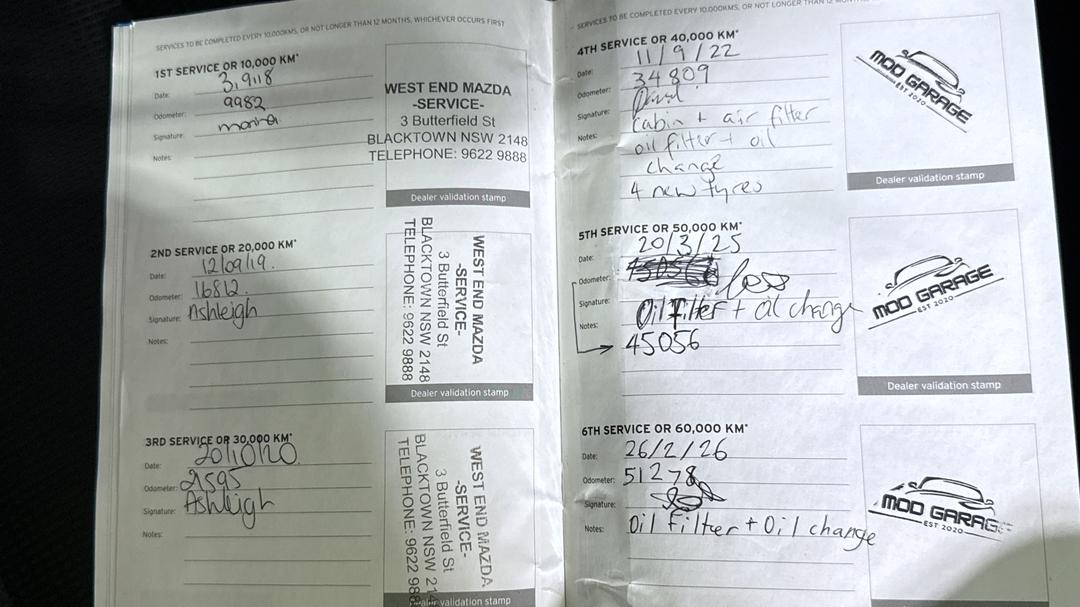 SERVICES TO BE COMPLETED EVERY 10,000KMS, OR NOT LONGER THAN 12 MONTHS, WHICHEVER OCCURS FIRST
1ST SERVICE OR 10,000 KM*
Date: 3.9.18
Odometer: 9982
Signature:
Notes:
WEST END MAZDA
-SERVICE-
3 Butterfield St
BLACKTOWN NSW 2148
TELEPHONE: 9622 9888
Dealer validation stamp
2ND SERVICE OR 20,000 KM*
Date: 12/09/19.
Odometer: 16812.
Signature: Ashleigh
Notes:
WEST END MAZDA
-SERVICE-
3 Butterfield St
BLACKTOWN NSW 2148
TELEPHONE: 9622 9888
Dealer validation stamp
3RD SERVICE OR 30,000 KM*
Date: 20/10/20.
Odometer:
Signature: Ashleigh
Notes:
WEST END MAZDA
-SERVICE-
3 Butterfield St
BLACKTOWN NSW 21
TELEPHONE: 9622 98
Dealer validation stamp
SERVICES TO BE COMPLETED EVERY 10,000KMS, OR NOT LONGER THAN 12
4TH SERVICE OR 40,000 KM*
Date: 11/9/22
Odometer: 34809
Signature:
Notes: Cabin + air filter
oil filter + oil
change
4 new tyres
MOD GARAGE
EST 2020
Dealer validation stamp
5TH SERVICE OR 50,000 KM*
Date: 20/3/25
Odometer:
Signature:
Notes: Oil Filter + Oil change
45056
MOD GARAGE
EST 2020
Dealer validation stamp
6TH SERVICE OR 60,000 KM*
Date: 26/2/26
Odometer: 51278
Signature:
Notes: Oil Filter + Oil change
MOD GARAGE
EST 2020